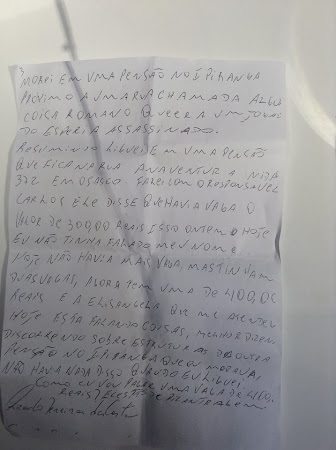 MOREI EM UMA PENSÃO NO IPIRANGA
PROXIMO A UMA RUA CHAMADA ALGU
COISA ROMANO QUE ERA UM
DO ASSASSINADO.
LIGUEI EM UMA PENSÃO
QUE FICA NA RUA ANA VENTURA
372 EM OSASCO FALEI COM O RESPONSAVEL
CARLOS E ELE DISSE QUE HAVIA VAGA O
VALOR DE 300,00 REAIS ISSO ONTEM O HOJE
EU NÃO TINHA FALADO MEU NOME...
HOJE NÃO HAVIA MAIS VAGA, MAS TINHAM
DUAS VAGAS, AGORA TEM UMA DE 400,00
REAIS E A ELISANGELA QUE ME ATENDEU
HOJE ESTA FALANDO COISAS, MELHOR DIZENDO
DISCORRENDO SOBRE ESTRUTURAS DA OUTRA
PENSÃO NO IPIRANGA QUE EU MORAVA,
NÃO HAVIA NADA DISSO QUANDO EU LIGUEI,
COMO EU VOU PAGAR UMA VAGA DE 400,
REAIS?